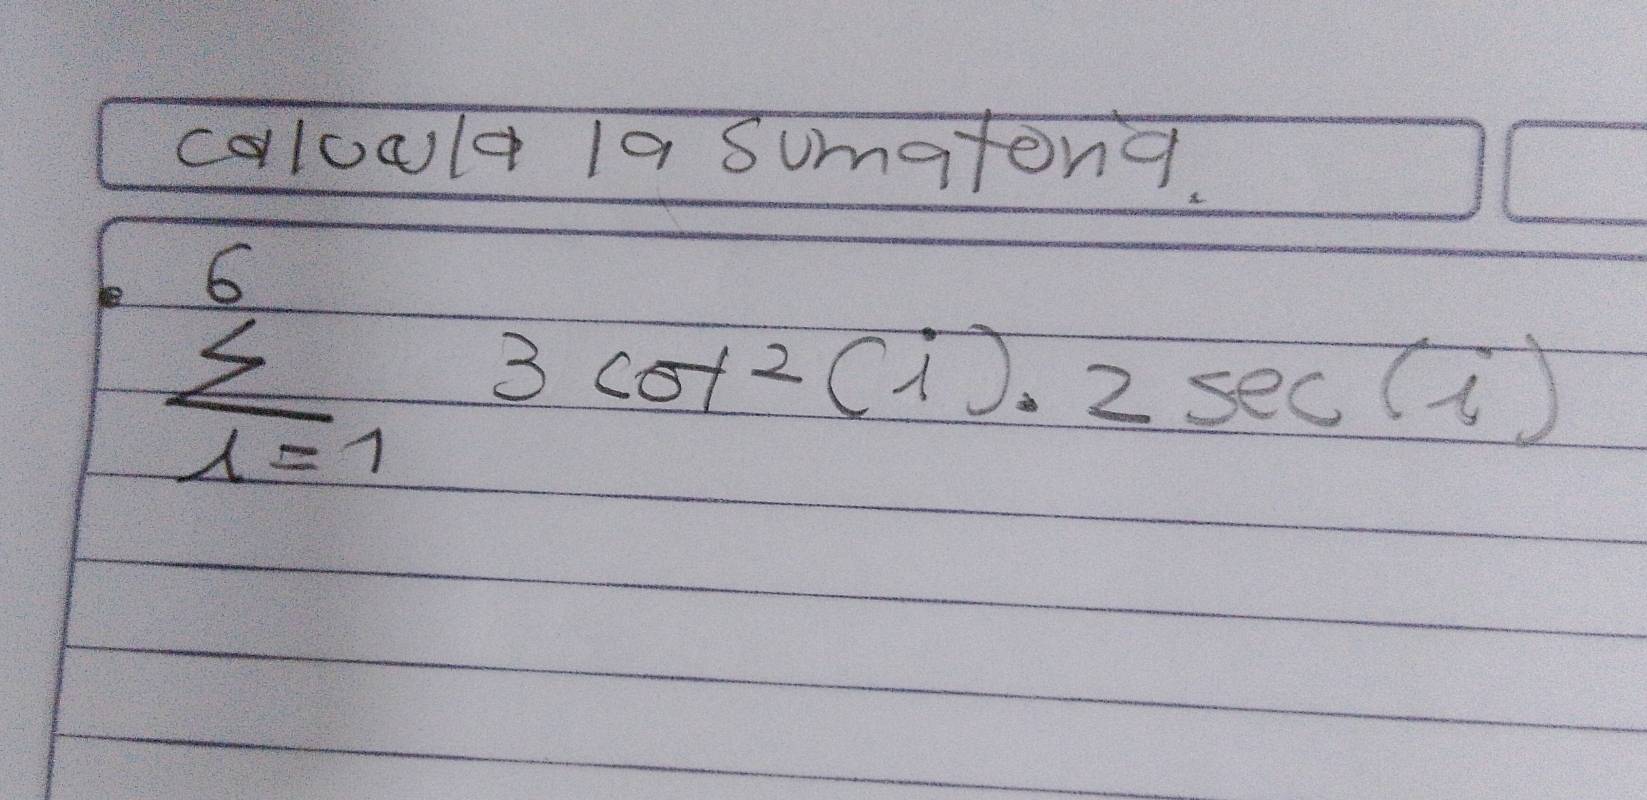 calcula la sumatoria.
6
Σ 3 cot² (i). 2 sec (i)
i = 1